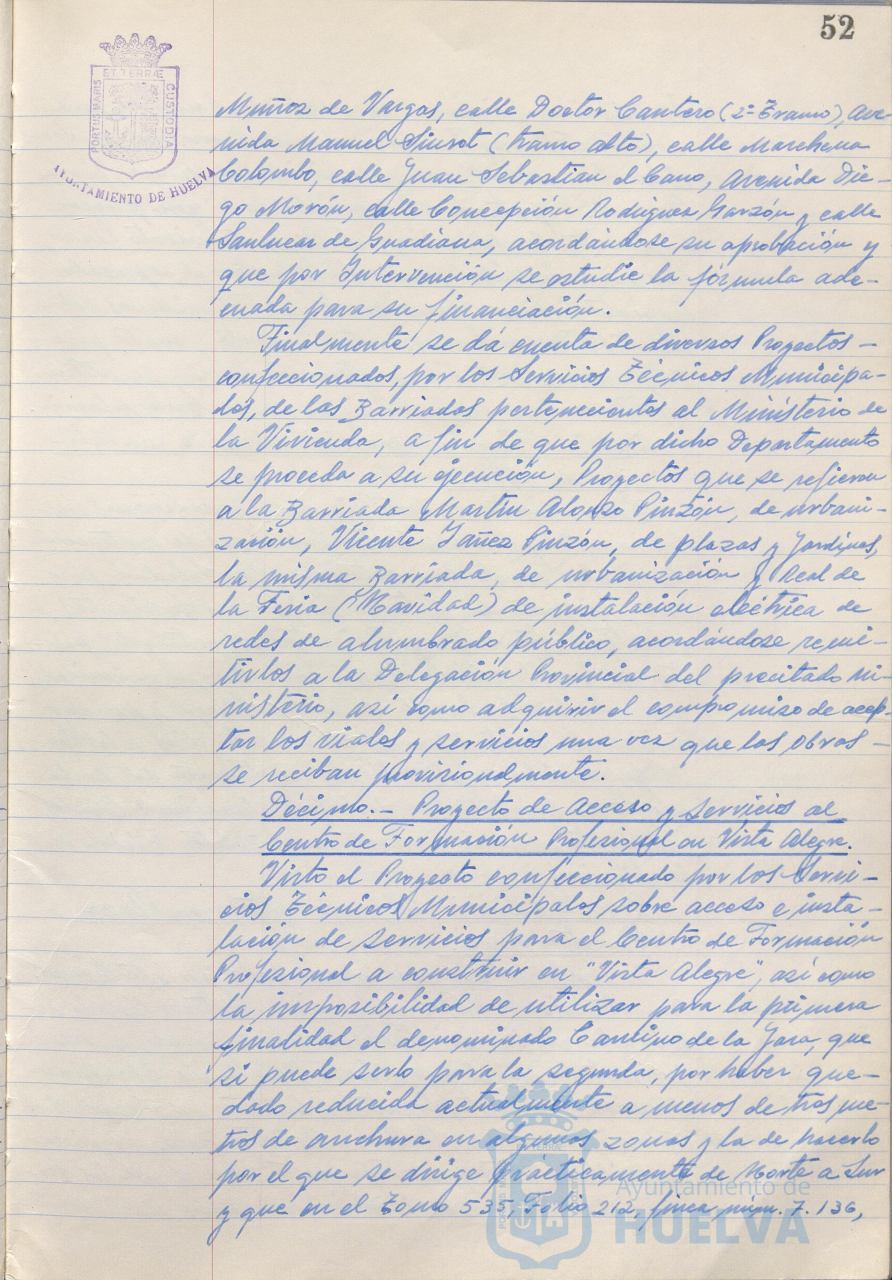 52
PORTUS MARIS
ET TERRÆ
CUSTODIA
AYUNTAMIENTO DE HUELVA
Muñoz de Vargas, calle Doctor Cantero (2º Tramo), Ave-
nida Manuel Siurot (tramo alto), calle Marchena
Colombo, calle Juan Sebastian el Cano, Avenida Die-
go Morón, calle Concepción Rodriguez Garzón y calle
Sanlucar de Guadiana, acordándose su aprobación y
que por Intervención se estudie la fórmula ade-
cuada para su financiación.
Finalmente se dá cuenta de diversos Proyectos -
confeccionados, por los Servicios Técnicos Municipa-
les, de las Barriadas pertenecientes al Ministerio de
la Vivienda, a fin de que por dicho Departamento
se proceda a su ejecución, Proyectos que se refieren
a la Barriada Martín Alonso Pinzón, de urbani-
zación, Vicente Yañez Pinzón, de plazas y Jardines,
la misma Barriada, de urbanización y Real de
la Feria (Navidad) de instalación eléctrica de
redes de alumbrado público, acordándose remi-
tirlos a la Delegación Provincial del precitado Mi-
nisterio, así como adquirir el compromiso de acep-
tar los viales y servicios una vez que las obras -
se reciban provisionalmente.
Décimo.- Proyecto de Acceso y Servicios al
Centro de Formación Profesional en Vista Alegre.
Visto el Proyecto confeccionado por los Servi-
cios Técnicos Municipales sobre acceso e insta-
lación de servicios para el Centro de Formación
Profesional a construir en "Vista Alegre", así como
la imposibilidad de utilizar para la primera
finalidad el denominado Camino de la Jara, que
si puede serlo para la segunda, por haber que-
dado reducida actualmente a menos de tres me-
tros de anchura en algunas zonas y la de hacerlo
por el que se dirige prácticamente de Norte a Sur
y que en el Tomo 535, Folio 212, finca núm. 7.136,
Ayuntamiento de
HUELVA